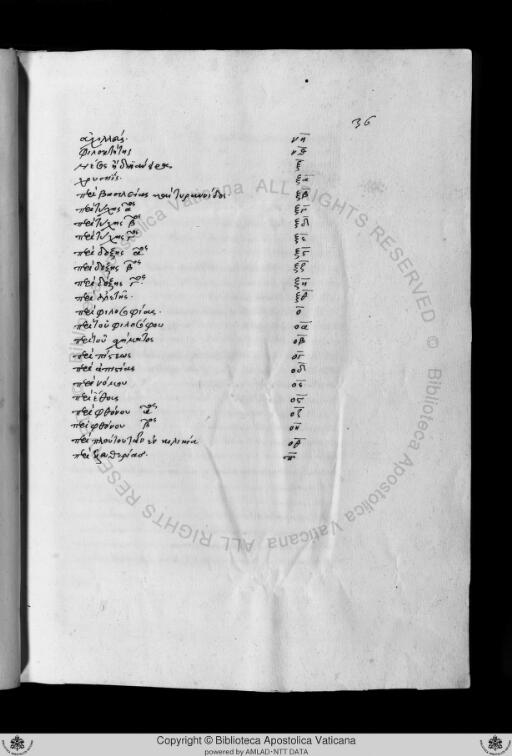 36
ἀχιλλεύς. νη
φιλοκτήτης νθ
νέσσος ἢ δηϊάνειρα ξ
χρυσηΐς· ξα
περὶ βασιλείας καὶ τυραννίδος ξβ
περὶ τύχης α^ος ξγ
περὶ τύχης β^ος ξδ
περὶ τύχης γ^ος ξε
περὶ δόξης α^ος ξς
περὶ δόξης β^ος ξζ
περὶ δόξης γ^ος ξη
περὶ ἀρετῆς. ξθ
περὶ φιλοσοφίας. ο
περὶ τοῦ φιλοσόφου οα
περὶ τοῦ σχήματος οβ
περὶ πίστεως ογ
περὶ ἀπιστίας οδ
περὶ νόμου οε
περὶ ἔθους ος
περὶ φθόνου α^ος οζ
περὶ φθόνου β^ος οη
περὶ πλούτου τῶν ἐν κιλικία οθ
περὶ ἐλευθερίας. π
© Biblioteca Apostolica Vaticana ALL RIGHTS RESERVED © Biblioteca Apostolica Vaticana ALL RIGHTS RESERVED
Copyright © Biblioteca Apostolica Vaticana
powered by AMLAD-NTT DATA